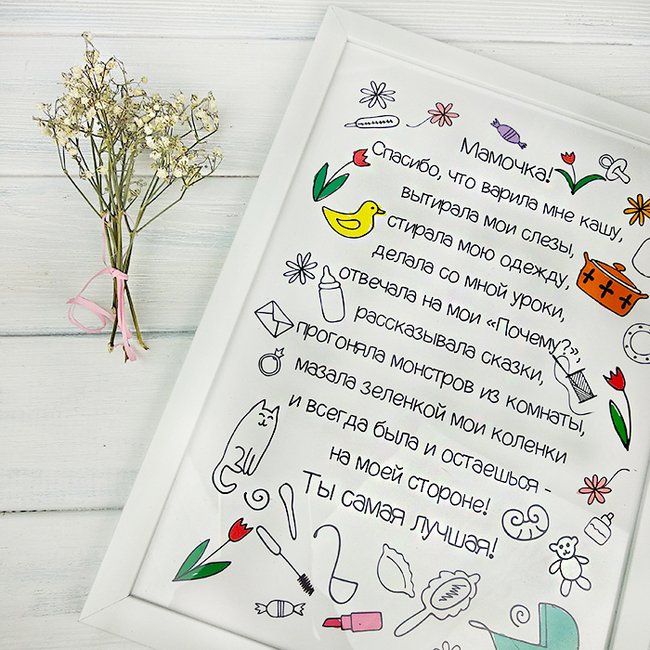 Мамочка!
Спасибо, что варила мне кашу,
вытирала мои слезы,
стирала мою одежду,
делала со мной уроки,
отвечала на мои «Почему?»,
рассказывала сказки,
прогоняла монстров из комнаты,
мазала зеленкой мои коленки
и всегда была и остаешься -
на моей стороне!
Ты самая лучшая!